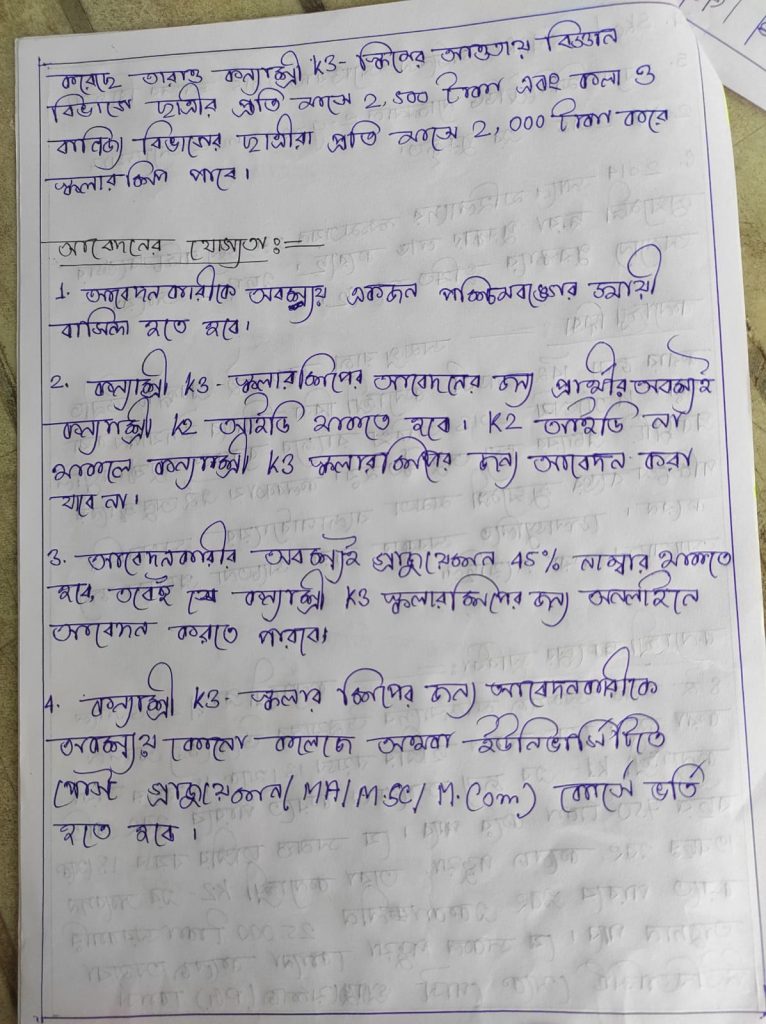 করেছে তারাও কন্যাশ্রী K3- স্কিমের আওতায় বিজ্ঞান
বিভাগে ছাত্রীর প্রতি মাসে 2,500 টাকা এবং কলা ও
বাণিজ্য বিভাগের ছাত্রীরা প্রতি মাসে 2,000 টাকা করে
স্কলারশিপ পাবে।
আবেদনের যোগ্যতা:—
1. আবেদনকারীকে অবশ্যয় একজন পশ্চিমবঙ্গের স্থায়ী
বাসিন্দা হতে হবে।
2. কন্যাশ্রী K3- স্কলারশিপের আবেদনের জন্য প্রার্থীর অবশ্যই
কন্যাশ্রী K2 আইডি থাকতে হবে। K2 আইডি না
থাকলে কন্যাশ্রী K3 স্কলারশিপের জন্য আবেদন করা
যাবে না।
3. আবেদনকারীর অবশ্যই গ্রাজুয়েশন 45% নাম্বার থাকতে
হবে, তবেই সে কন্যাশ্রী K3 স্কলারশিপের জন্য অনলাইনে
আবেদন করতে পারবে।
4. কন্যাশ্রী K3- স্কলার শিপের জন্য আবেদনকারীকে
অবশ্যয় কোনো কলেজে অথবা ইউনিভার্সিটিতে
পোস্ট গ্রাজুয়েশন (MA/M.SC/M.Com) কোর্সে ভর্তি
হতে হবে।